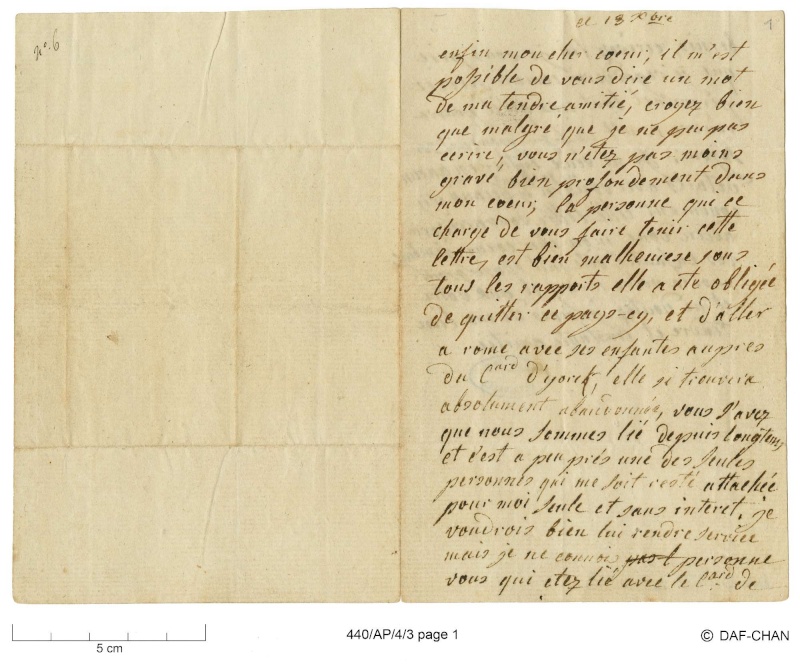 nº. 6
ce 18 xbre
1
enfin mon cher coeur, il m'est
possible de vous dire un mot
de ma tendre amitié, croyez bien
que malgré que je ne peu pas
ecrire, vous n'etez pas moins
gravé bien profondement dans
mon coeur, la personne qui ce
charge de vous faire tenir cette
lettre, est bien malheurese sous
tous les rapports elle a ete obligée
de quitter ce pays-cy, et d'aller
a rome avec ses enfantes aupres
du Card d'yorck, elle si trouvera
absolument abandonnée, vous s'avez
que nous sommes lié depuis longtems
et c'est a peu prés une des seules
personnes qui me soit resté attachée
pour moi seule et sans interet, je
voudrois bien lui rendre service
mais je ne connois personne
vous qui etez lié avec le Card de
5 cm
440/AP/4/3 page 1
© DAF-CHAN